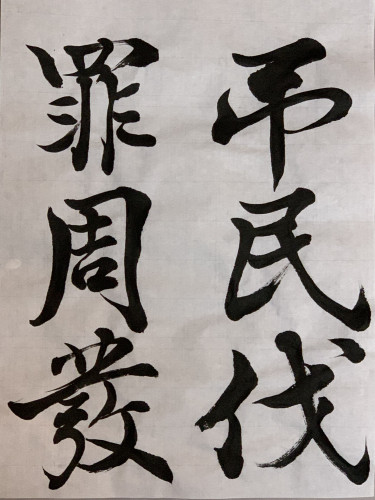 弔民伐
罪周發